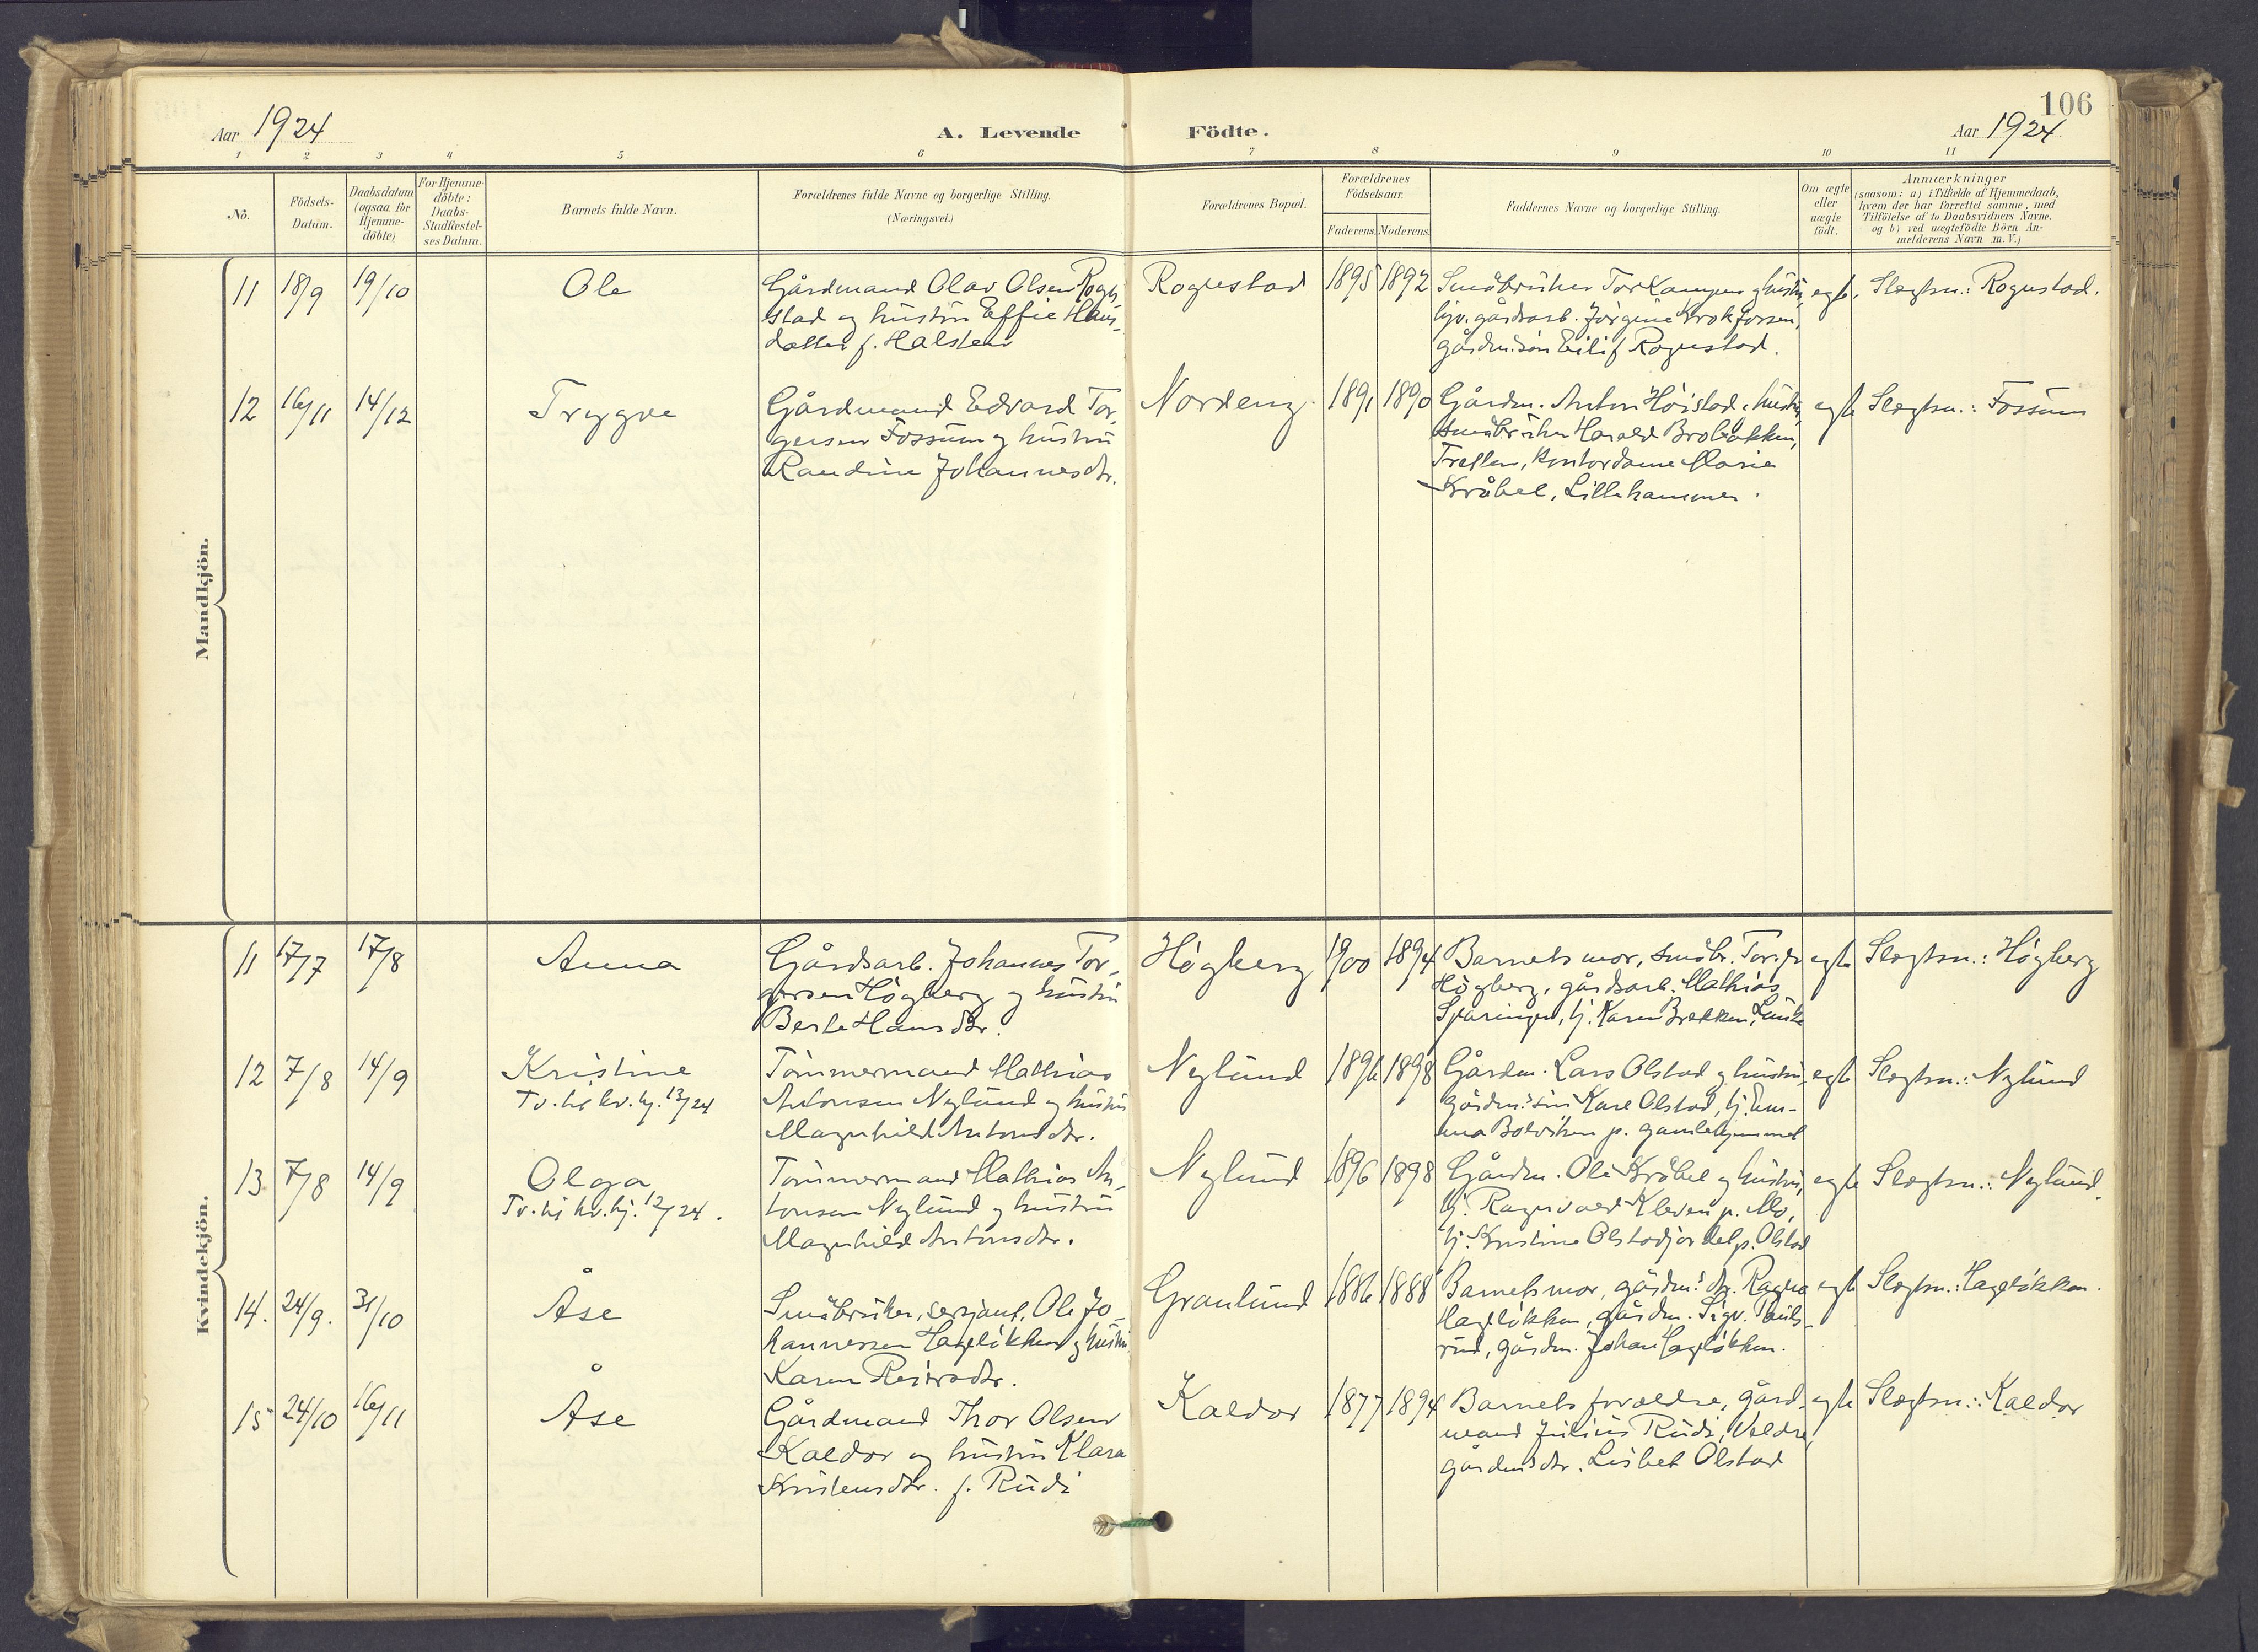 106
Aar 1924
A. Levende
Födte.
Aar 1924
1 2 3 4 5 6 7 8 9 10 11
No.
Födsels-
Datum.
Daabsdatum
(ogsaa for
Hjemme-
döbte)
For Hjemme-
döbte:
Daabs-
Stadfæstel-
ses Datum.
Barnets fulde Navn.
Forældrenes fulde Navne og borgerlige Stilling.
(Næringsvei.)
Forældrenes Bopæl.
Forældrenes
Födselsaar.
Faderens.
Moderens.
Faddernes Navne og borgerlige Stilling.
Om ægte
eller
uægte
födt.
Anmærkninger
(saasom: a) i Tilfælde af Hjemmedaab,
hvem der har forrettet samme, med
Tilföielse af to Daabsvidners Navne.
og b) ved uægtefödte Börn An-
melderens Navn m.V.)
Mandkjön.
11 18/9 19/10
Ole
Gårdmand Olav Olsen Rogn-
stad og hustru Effie Hans-
datter f. Halsten
Rognestad
1895 1892
Småbruker Tor Kampen og hustru,
gårdsarb. Jörgine Brokfossen,
gårdm.sön Eilif Rognstad.
egte.
Slegtsn.: Rognstad.
12 16/11 14/12
Trygve
Gårdmand Edvard Tor-
gersen Fossum og hustru
Randine Johannesdtr.
Nordeng
1891 1890
Gårdm. Anton Höistad, hustru,
småbruker Harald Brobakken,
Tretten, kontordame Marie
Kråbel, Lillehammer.
egte
Slegtsn.: Fossum
Kvindekjön.
11 17/7 17/8
Anna
Gårdsarb. Johannes Tor-
gersen Högberg og hustru
Berte Hansdtr.
Högberg
1900 1894
Barnets mor, småbr. Torger
Högberg, gårdsarb. Mathias
tj. Karen Brekken,
egte
Slegtsn.: Högberg
12 7/8 14/9
Kristine
Tv. hj. 13/24
Tömmermand Mathias
Antonsen Nylund og hustru
Magnhild Antonsdtr.
Nylund
1896 1898
Gårdm. Lars Olstad og hustru,
gårdm.'sön Kare Olstad, tj. Em-
ma Bolviken p. gamlehjemmet
egte
Slegtsn.: Nylund
13 7/8 14/9
Olga
Tv. hj. 12/24.
Tömmermand Mathias An-
tonsen Nylund og hustru
Magnhild Antonsdtr.
Nylund
1896 1898
Gårdm. Ole Kråbel og hustru,
tj. Ragnvald Kleven p. Mo,
tj. Kristine Olstadjordet p. Olstad
egte
Slegtsn.: Nylund.
14. 24/9. 31/10
Åse
Småbruker, serjant, Ole Jo-
hannessen Hagelökken og hustru
Karen Reiersdtr.
Granlund
1886 1888
Barnets mor, gårdm.'s dtr. Ragna
Hagelökken, gårdm. Sigv. Pauls-
rud, gårdm. Johan Hagelökken.
egte
Slegtsn.: Hagelökken.
15 24/10 16/11
Åse
Gårdmand Thor Olsen
Kaldor og hustru Klara
Kristensdtr. f. Rudi
Kaldor
1877 1894
Barnets forældre, gård-
mand Julius Rudi, Veldre,
gårdm.'s dtr. Lisbet Olstad
egte
Slegtsn.: Kaldor